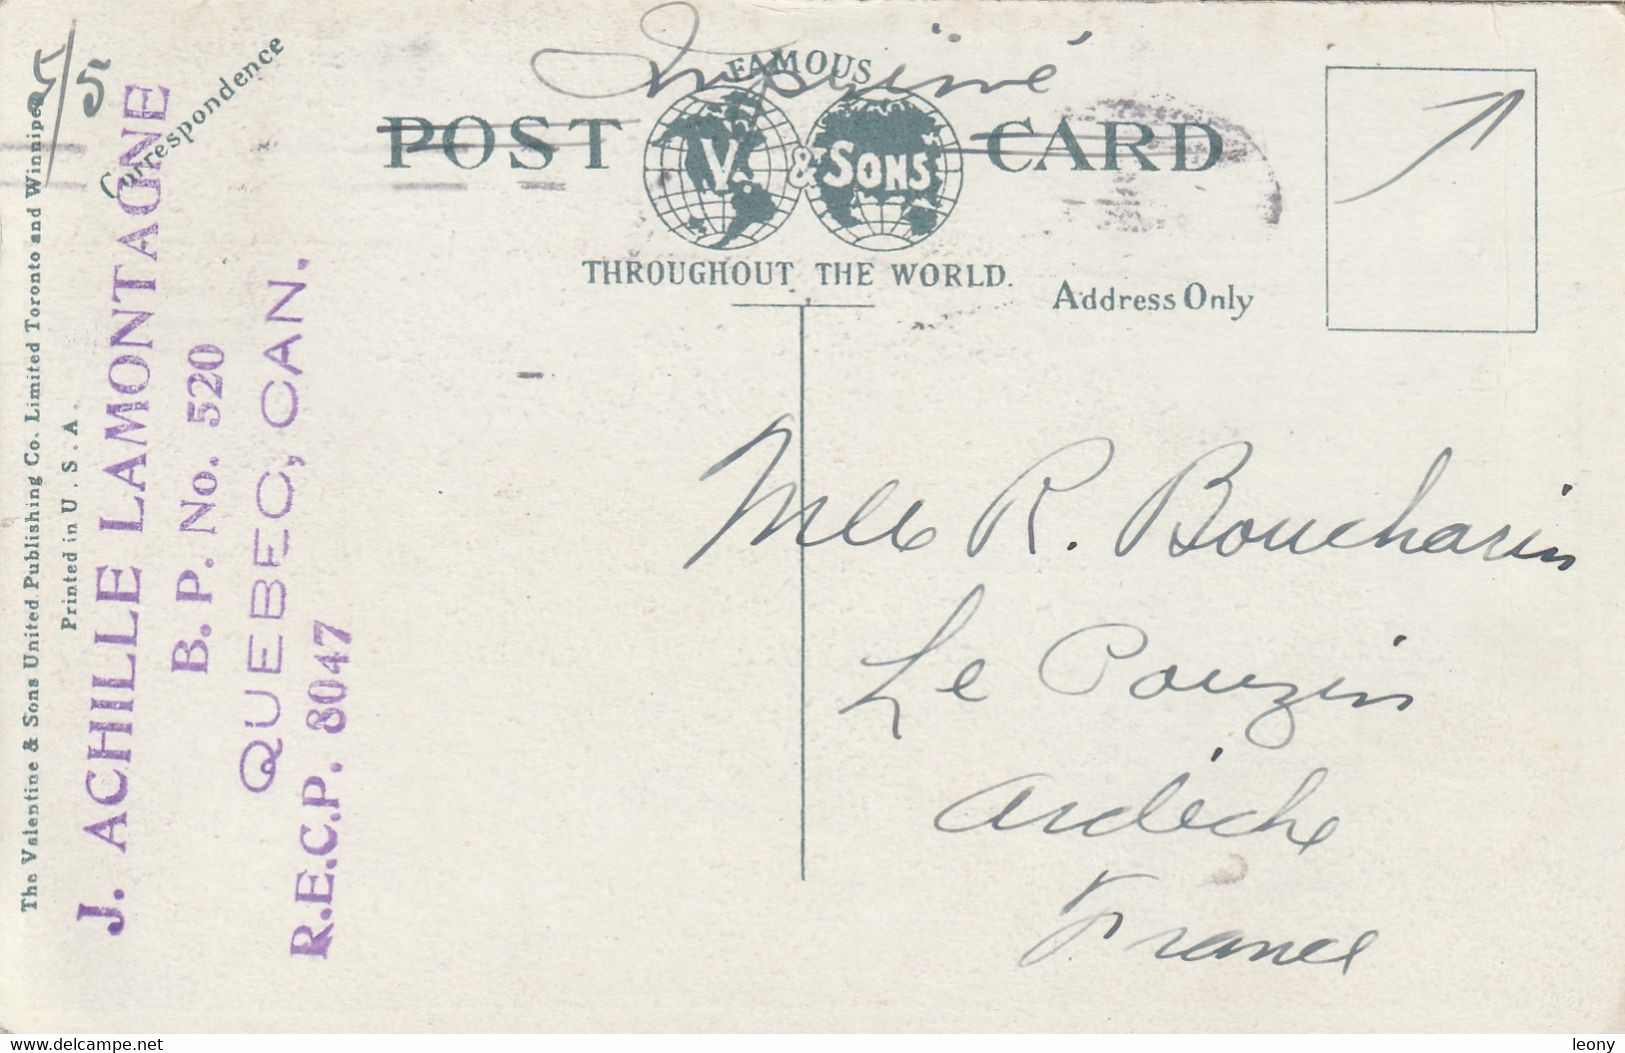 Imprimé
5/5
Correspondence
FAMOUS
POST CARD
V. & SONS
THROUGHOUT THE WORLD.
Address Only
The Valentine & Sons United Publishing Co. Limited Toronto and Winnipeg
Printed in U.S.A.
J. ACHILLE LAMONTAGNE
B. P. No. 520
QUEBEC, CAN.
R.E.C.P. 8047
Mlle R. Boucharin
Le Pouzin
Ardèche
France
www.delcampe.net
leony